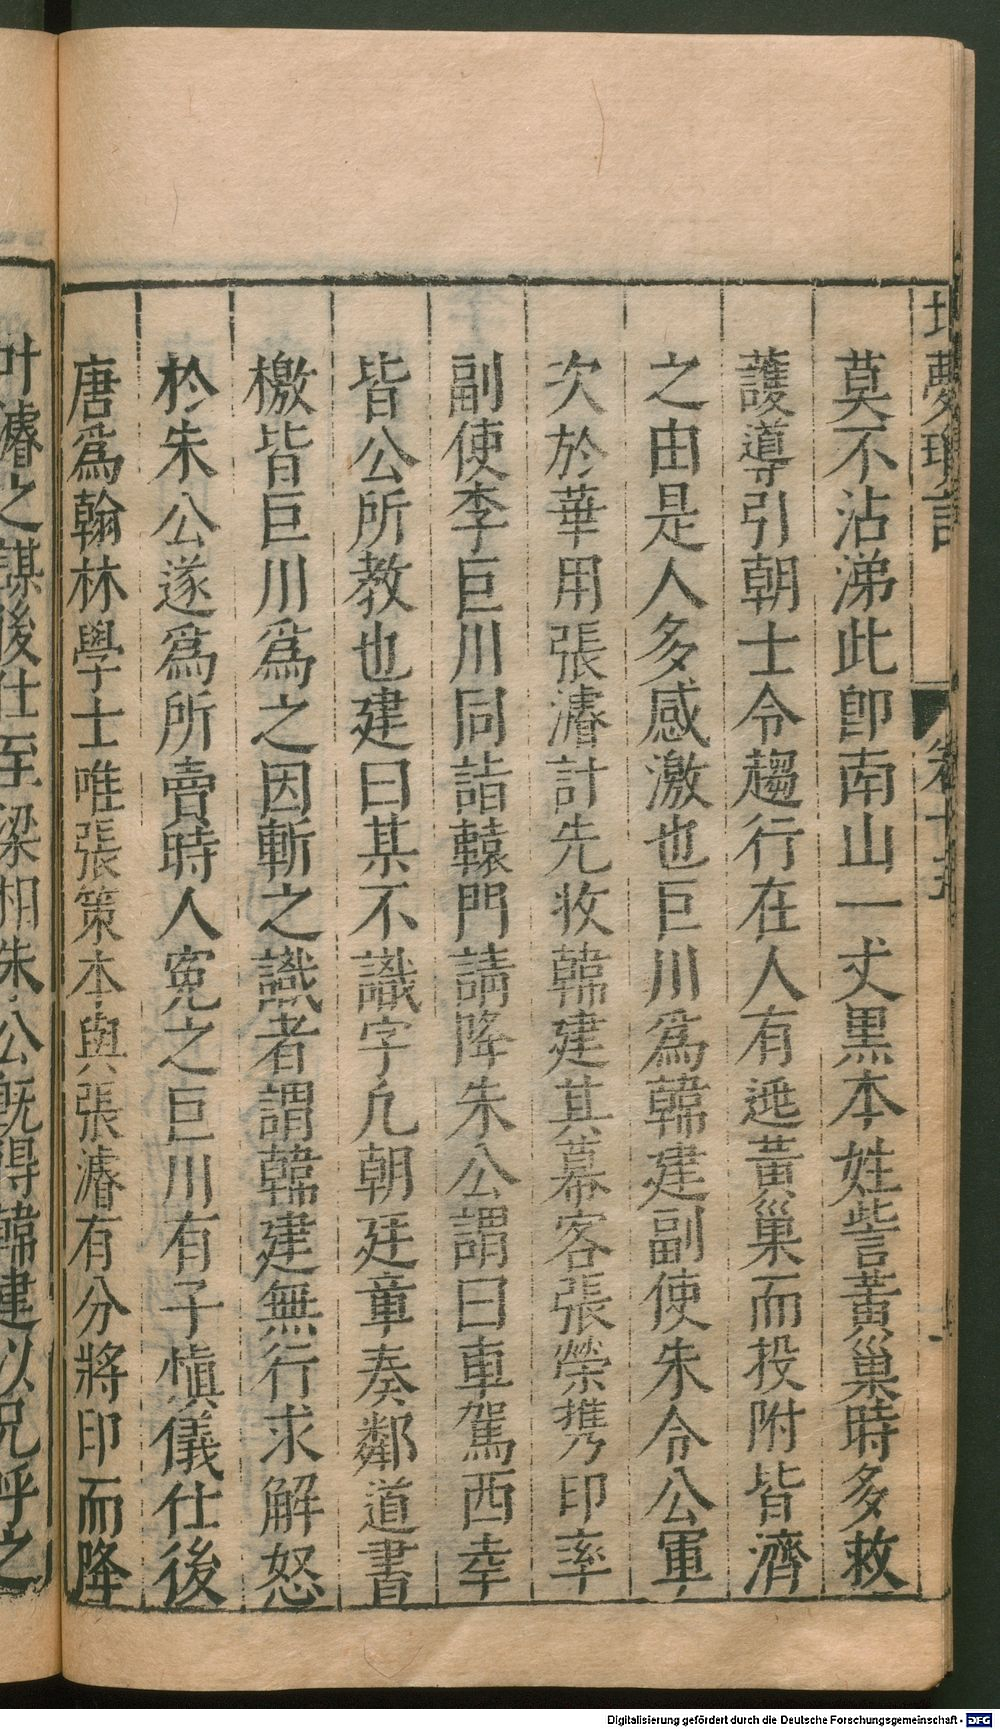 夢瑣言
卷十
莫不沾涕此卽南山一丈黒本姓訾黃巢時多救
護導引朝士令趨行在人有逃黃巢而投附皆濟
之由是人多感激也巨川爲韓建副使朱令公軍
次於華用張濬計先收韓建其幕客張策攜印率
副使李巨川同詣轅門請降朱公謂曰車駕西幸
皆公所教也建曰某不識字凡朝廷章奏鄰道書
檄皆巨川爲之因斬之識者謂韓建無行求解怒
於朱公遂爲所賣時人寃之巨川有子慎儀仕後
唐爲翰林學士唯張策本與張濬有分將印而降
叶濬之謀後仕至梁相朱公旣得韓建以兄呼之
Digitalisierung gefördert durch die Deutsche Forschungsgemeinschaft - DFG